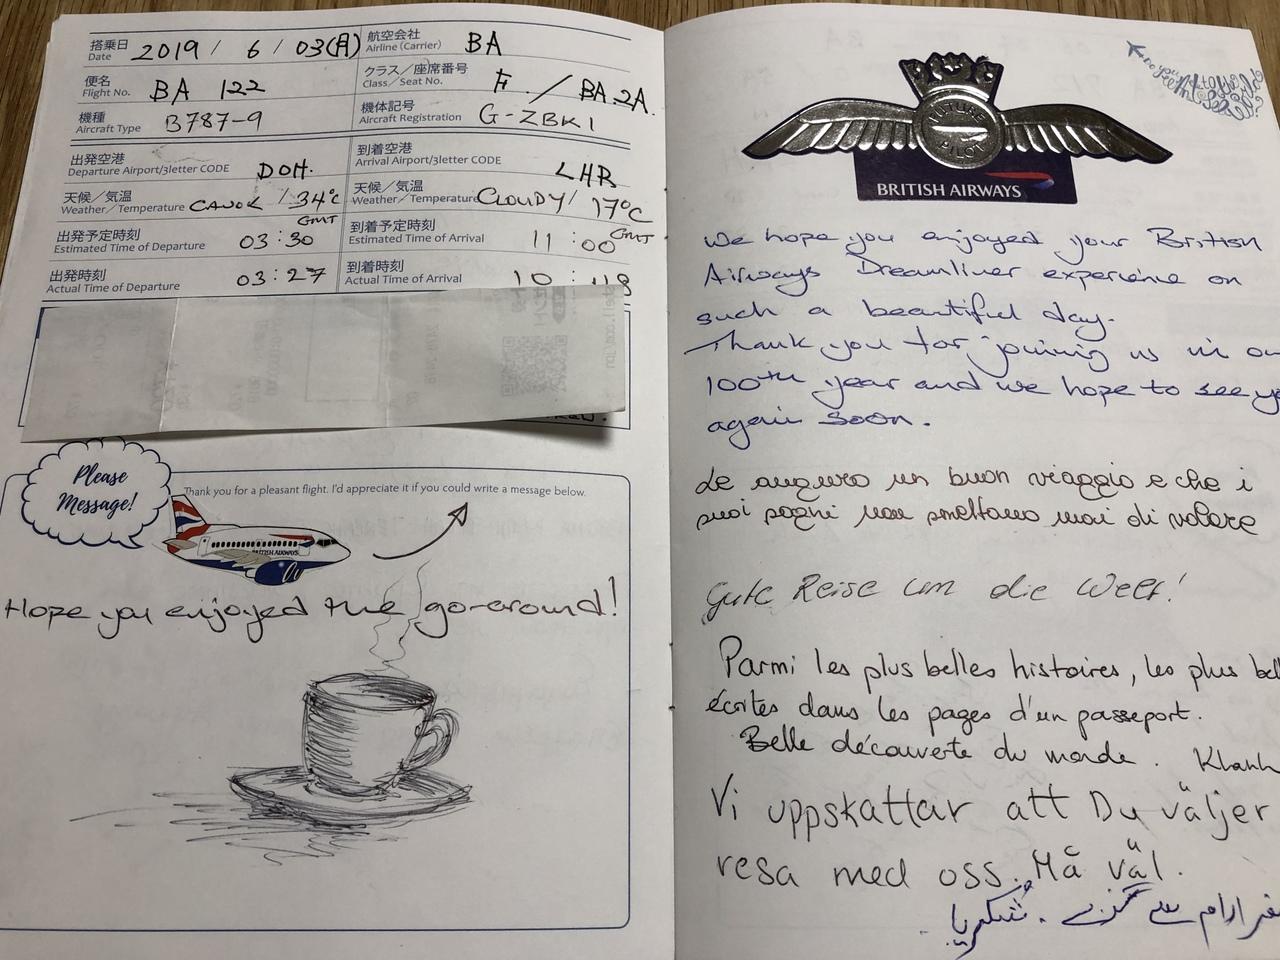 搭乗日
Date
2019 / 6 / 03(月)
航空会社
Airline (Carrier)
BA
便名
Flight No.
BA 122
クラス／座席番号
Class／Seat No.
F. / BA.2A.
機種
Aircraft Type
B787-9
機体記号
Aircraft Registration
G-ZBKI
出発空港
Departure Airport/3letter CODE
DOH.
到着空港
Arrival Airport/3letter CODE
LHR
天候／気温
Weather／Temperature
CAVOK / 34°C
天候／気温
Weather／Temperature
CLOUDY / 17°C
出発予定時刻
Estimated Time of Departure
03:30 GMT
到着予定時刻
Estimated Time of Arrival
11:00 GMT
出発時刻
Actual Time of Departure
03:27
到着時刻
Actual Time of Arrival
10:
Please
Message!
Thank you for a pleasant flight. I'd appreciate it if you could write a message below.
BRITISH AIRWAYS
Hope you enjoyed the go-around!
FUTURE
PILOT
BRITISH AIRWAYS
We hope you enjoyed your British
Airways Dreamliner experience on
such a beautiful day.
Thank you for joining us in
100th year and we hope to see
again soon.
Le auguro un buon viaggio e che i
suoi sogni non smettano mai di volare
Gute Reise um die Welt!
Parmi les plus belles histoires, les plus
écrites dans les pages d'un passeport.
Belle découverte du monde. Khanh
Vi uppskattar att Du väljer
resa med oss. Må väl.
ارام سے گزرے ۔ شکریا